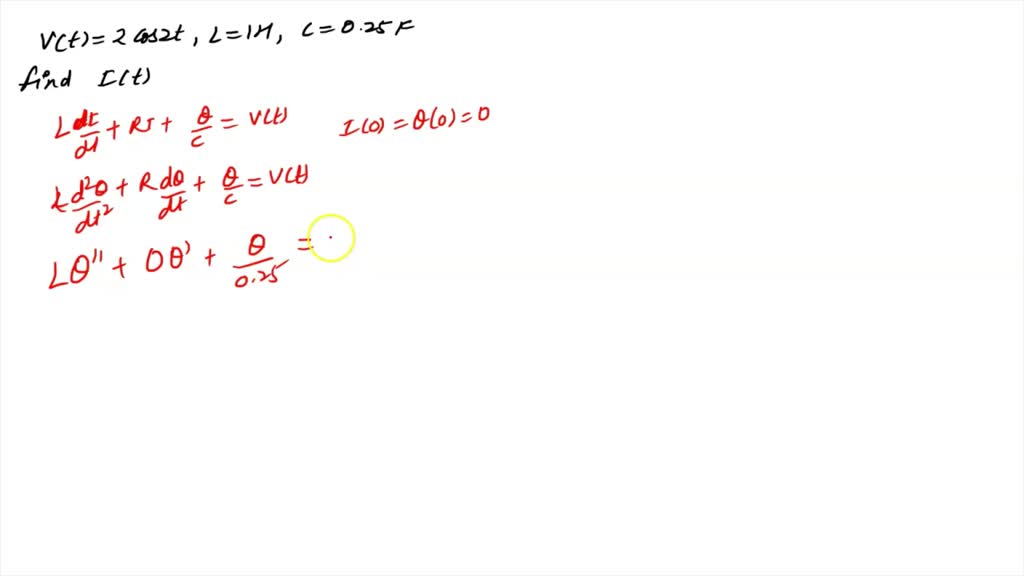 V(t) = 2 cos2t, L = 1H, C = 0.25 F
find I(t)
L dI/dt + RI + θ/c = V(t)    I(0) = θ(0) = 0
L d²θ/dt² + R dθ/dt + θ/c = V(t)
Lθ'' + 0θ' + θ/0.25 =